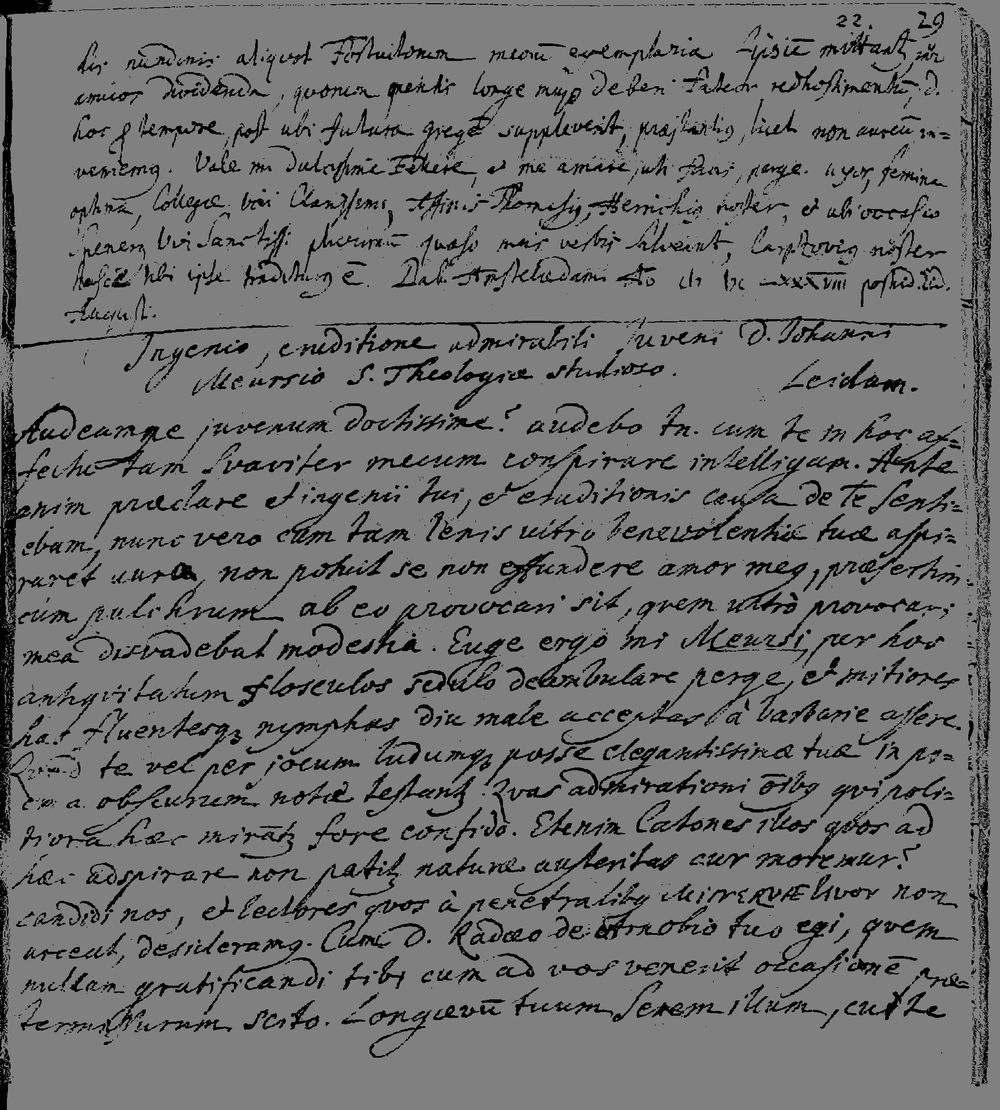 22. 29
his nundinis aliquot Fortuitorum meorū exemplaria Lipsiā mittantʒ inter
amicos dividenda, quorum mentis longe majꝯ deberi fateor redhostimentū, d.
hoc tempore, post ubi futura gregē supplevent, præstantiꝯ, licet non aureū in-
veniemꝯ. Vale mi dulcissime Fellere, et me amare, uti facis, perge. uxor, femina
optima, Collegæ viri Clarissimi, Affinis Thomasiꝯ, Herrichiꝯ noster, et ubi occasio
Speneri Viri Sanctissi plurimū quæso meis verbis salveant, Carpzoviꝯ noster
hasce tibi ipse traditurꝯ ē. Dab. Amstelædami Ao
Augusti.
Ingenio, eruditione admirabili Juveni D. Iohanni
Meursio S. Theologiæ studioso. Leidam.
Audeamne juvenum doctissime? audebo tn. cum te in hoc af-
fectu tam svaviter mecum conspirare intelligam. Ante
enim præclare et ingenii tui, et eruditionis causa de Te senti-
ebam, nunc vero cum tam lenis ultro benevolentiæ tuæ aspi-
raret aura, non potuit se non effundere amor meꝯ, præsertim
cum pulchrum ab eo provocari sit, quem ultrò provocari
mea disvadebat modestia. Euge ergo mi Meursi, per hos
antiqvitatum flosculos sedulo deambulare perge, et mitiores
has fluentesqʒ nymphas diu male acceptas â barbarie assere.
Qvid te vel per jocum ludumqʒ posse elegantissimæ tuæ in po-
ema obscurum notæ testantʒ. Qvas admirationi oībꝯ qvi poli-
tiora hæc mirātʒ fore confido. Etenim Catones illos qvos ad
hæc adspirare non patitʒ naturæ austeritas cur moremur?
candidi nos, et lectores qvos à penetralibꝯ MINERVÆ livor non
arceat, desideramꝯ. Cum D. Radæo de Arnobio tuo egi, qvem
nullam gratificandi tibi cum ad vos venerit occasionē præ-
termissurum scito. Longævū tuum Serem illum, cui te